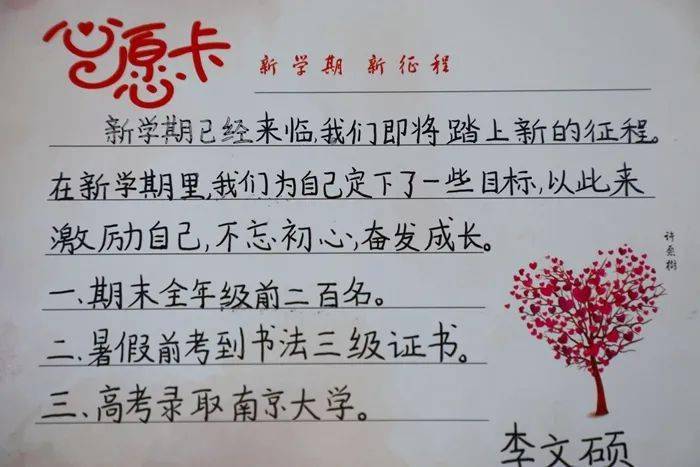 心愿卡
新学期 新征程
新学期已经来临,我们即将踏上新的征程。
在新学期里,我们为自己定下了一些目标,以此来
激励自己,不忘初心,奋发成长。
一、期末全年级前二百名。
二、暑假前考到书法三级证书。
三、高考录取南京大学。
许愿树
李文硕